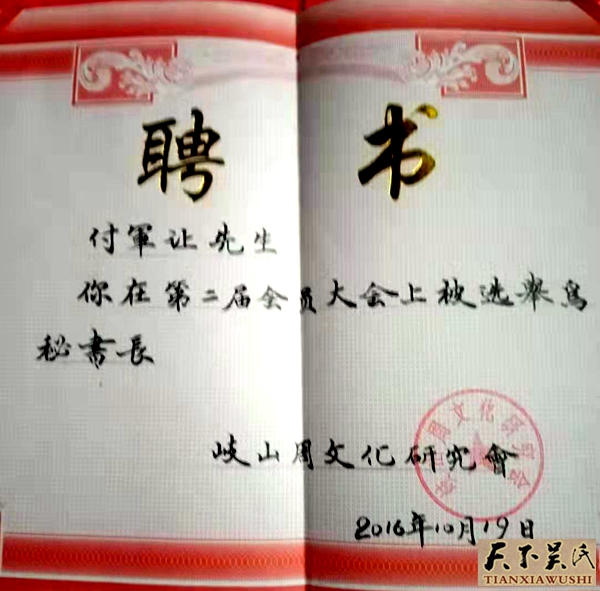 聘书
付軍让先生
你在第二届会员大会上被选举為
秘書長
岐山周文化研究會
岐山周文化研究会
2016年10月19日
天下吴氏
TIANXIAWUSHI